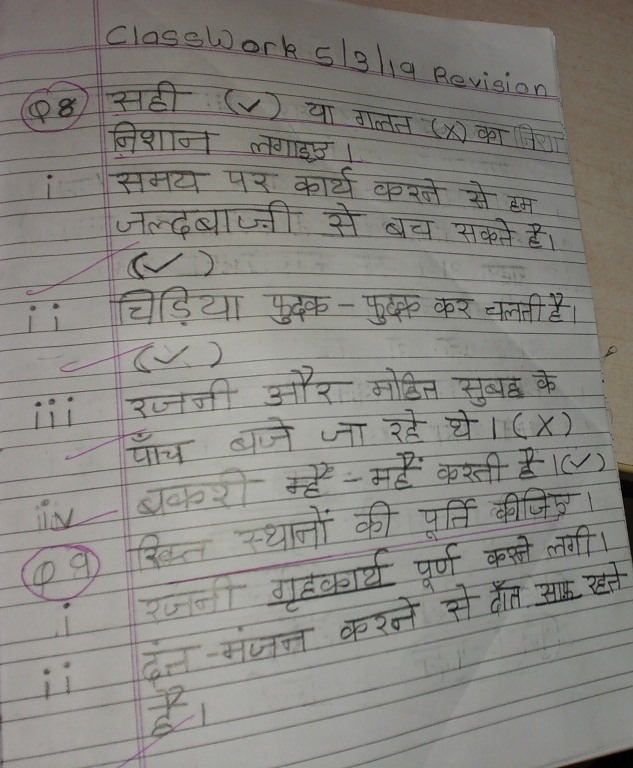 ClassWork 5/3/19 Revision
Q8 सही (✓) या गलत (X) का
निशान लगाइए।
i समय पर कार्य करने से हम
जल्दबाज़ी से बच सकते है।
(✓)
ii चिड़िया फुदक - फुदक कर चलती है।
(✓)
iii रजनी और मोहित सुबह के
पाँच बजे जा रहे थे। (X)
iiv बकरी म्हैं - म्हैं करती है। (✓)
Q9 रिक्त स्थानों की पूर्ति कीजिए।
i रजनी गृहकार्य पूर्ण करने लगी।
ii दंत - मंजन करने से दाँत साफ़ रहते
है।